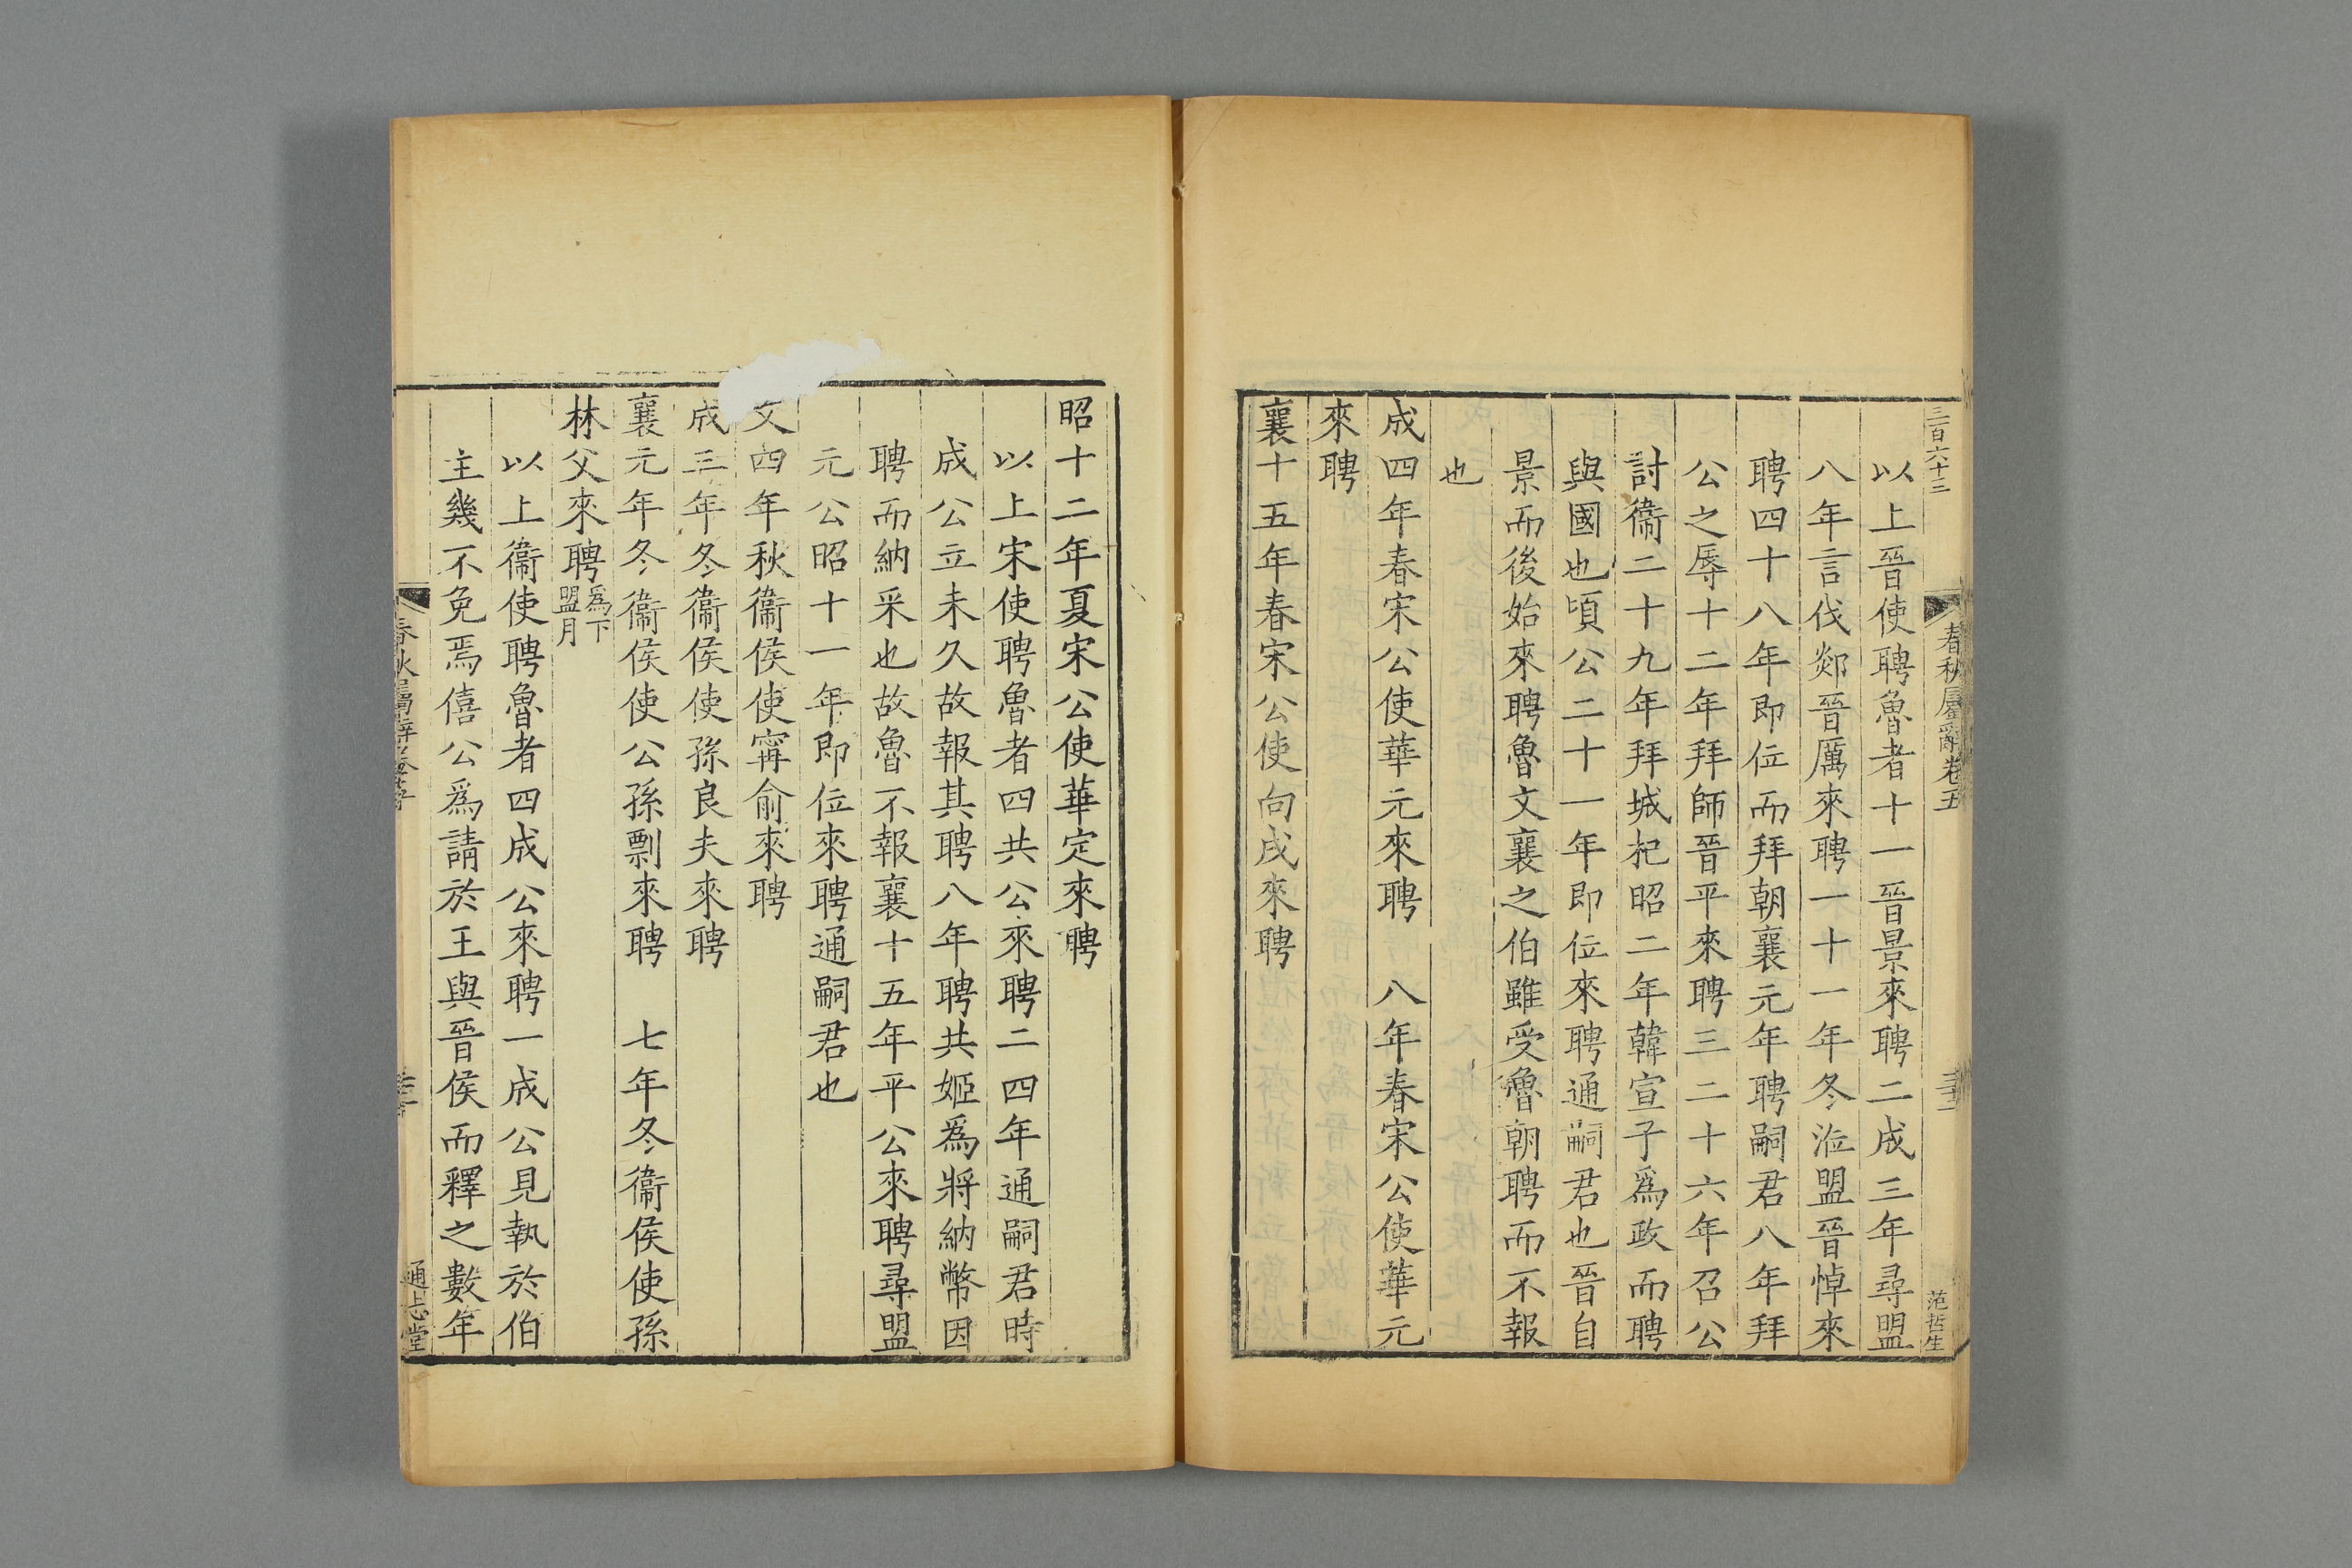 三百六十三
春秋屬辭卷五
范哲生
以上晉使聘魯者十一晉景來聘二成三年尋盟
八年言伐郯晉厲來聘一十一年冬涖盟晉悼來
聘四十八年即位而拜朝襄元年聘嗣君八年拜
公之辱十二年拜師晉平來聘三二十六年召公
討衞二十九年拜城杞昭二年韓宣子爲政而聘
與國也頃公二十一年即位來聘通嗣君也晉自
景而後始來聘魯文襄之伯雖受魯朝聘而不報
也
成四年春宋公使華元來聘　八年春宋公使華元
來聘
襄十五年春宋公使向戌來聘
昭十二年夏宋公使華定來聘
以上宋使聘魯者四共公來聘二四年通嗣君時
成公立未久故報其聘八年聘共姬爲將納幣因
聘而納采也故魯不報襄十五年平公來聘尋盟
元公昭十一年即位來聘通嗣君也
文四年秋衞侯使甯俞來聘
成三年冬衞侯使孫良夫來聘
襄元年冬衞侯使公孫剽來聘　七年冬衞侯使孫
林父來聘爲下盟月
以上衞使聘魯者四成公來聘一成公見執於伯
主幾不免焉僖公爲請於王與晉侯而釋之數年
通志堂